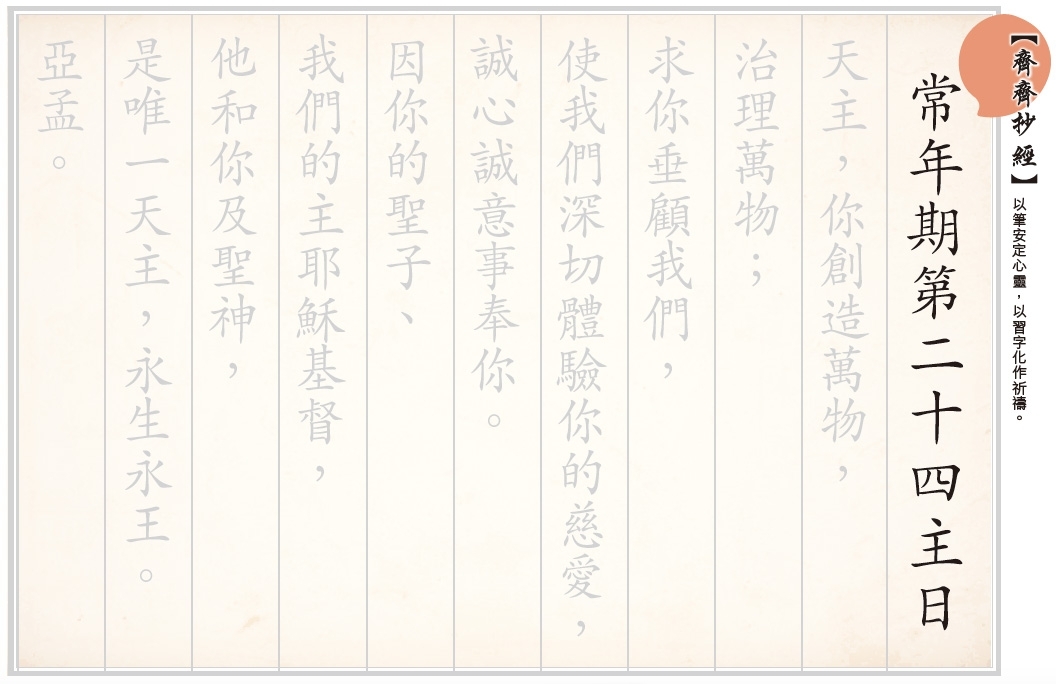 【齊齊抄經】以筆安定心靈，以習字化作祈禱。
常年期第二十四主日
天主，你創造萬物，
治理萬物；
求你垂顧我們，
使我們深切體驗你的慈愛，
誠心誠意事奉你。
因你的聖子、
我們的主耶穌基督，
他和你及聖神，
是唯一天主，永生永王。
亞孟。